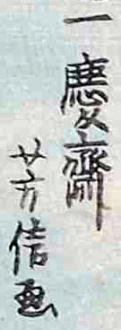 一慶齋
芳信画